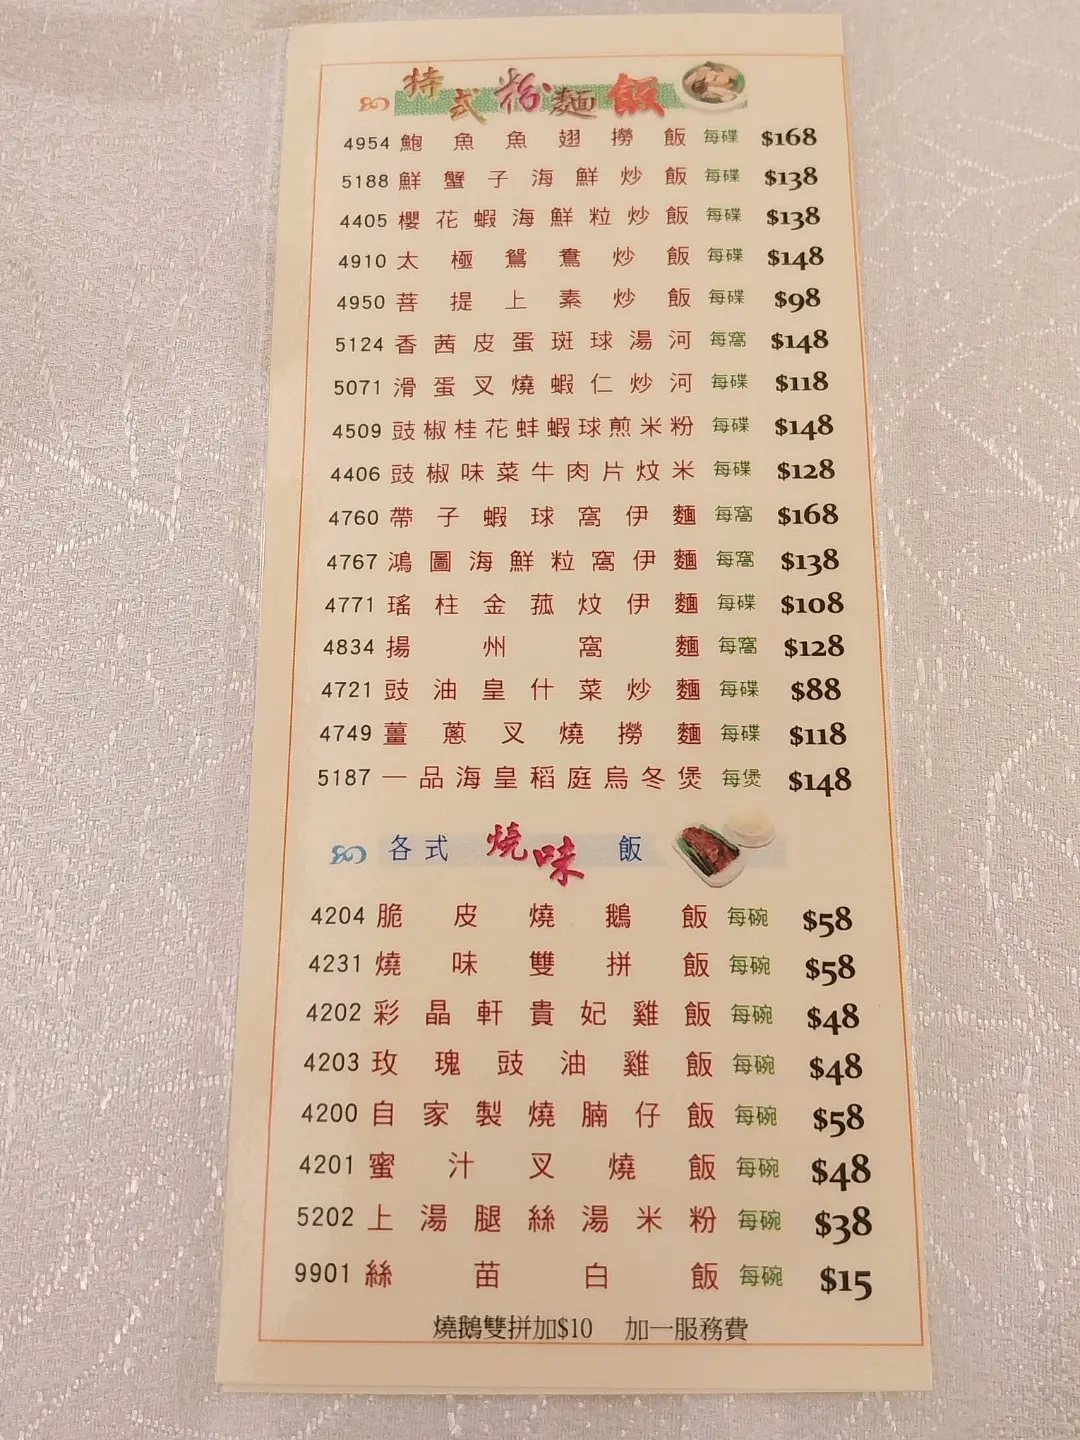 特式粉麵飯
4954 鮑魚魚翅撈飯 每碟 $168
5188 鮮蟹子海鮮炒飯 每碟 $138
4405 櫻花蝦海鮮粒炒飯 每碟 $138
4910 太極鴛鴦炒飯 每碟 $148
4950 菩提上素炒飯 每碟 $98
5124 香茜皮蛋斑球湯河 每窩 $148
5071 滑蛋叉燒蝦仁炒河 每碟 $118
4509 豉椒桂花蚌蝦球煎米粉 每碟 $148
4406 豉椒味菜牛肉片炆米 每碟 $128
4760 帶子蝦球窩伊麵 每窩 $168
4767 鴻圖海鮮粒窩伊麵 每窩 $138
4771 瑤柱金菰炆伊麵 每碟 $108
4834 揚州窩麵 每窩 $128
4721 豉油皇什菜炒麵 每碟 $88
4749 薑蔥叉燒撈麵 每碟 $118
5187 一品海皇稻庭烏冬煲 每煲 $148
各式燒味飯
4204 脆皮燒鵝飯 每碗 $58
4231 燒味雙拼飯 每碗 $58
4202 彩晶軒貴妃雞飯 每碗 $48
4203 玫瑰豉油雞飯 每碗 $48
4200 自家製燒腩仔飯 每碗 $58
4201 蜜汁叉燒飯 每碗 $48
5202 上湯腿絲湯米粉 每碗 $38
9901 絲苗白飯 每碗 $15
燒鵝雙拼加$10 加一服務費